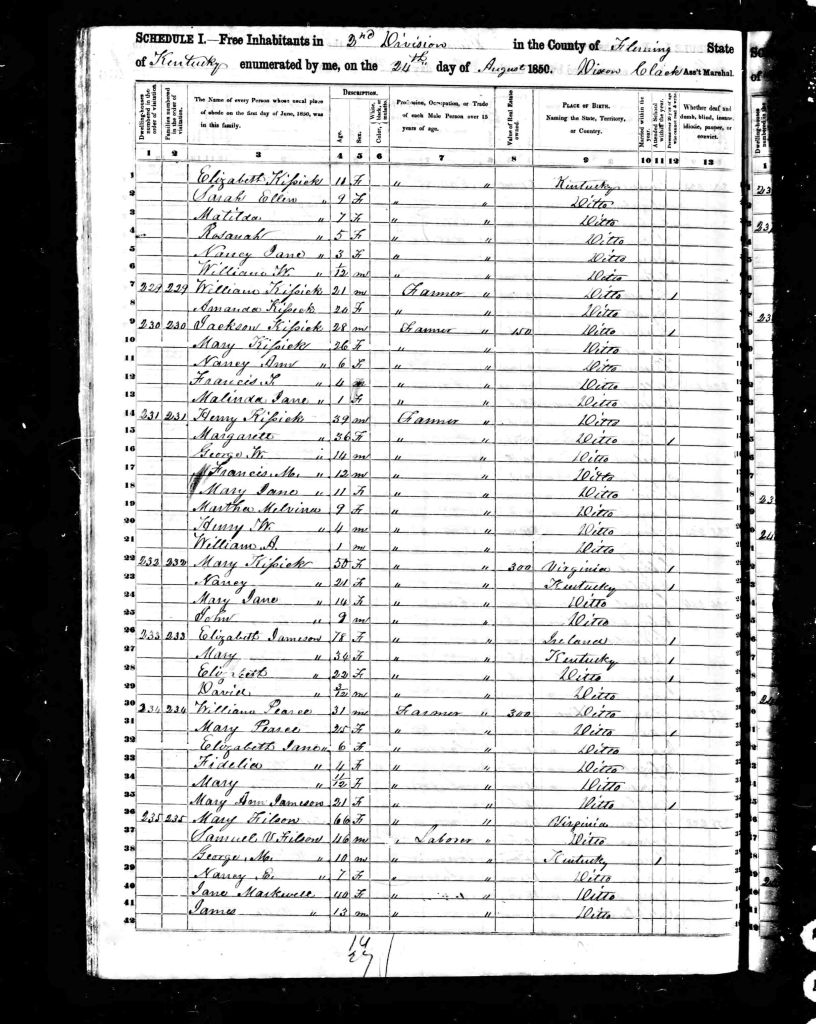 SCHEDULE I.—Free Inhabitants in 2nd Division in the County of Fleming State
of Kentucky enumerated by me, on the 24th day of August 1850. Dixon Clack Ass't Marshal.
Dwelling-houses numbered in the order of visitation.
Families numbered in the order of visitation.
The Name of every Person whose usual place of abode on the first day of June, 1850, was in this family.
DESCRIPTION.
Age.
Sex.
Color, White, black, or mulatto.
Profession, Occupation, or Trade of each Male Person over 15 years of age.
Value of Real Estate owned.
PLACE OF BIRTH. Naming the State, Territory, or Country.
Married within the year.
Attended School within the year.
Whether deaf and dumb, blind, insane, idiotic, pauper, or convict.
1 2 3 4 5 6 7 8 9 10 11 12 13
1 Elizabeth Kissick 11 F " " Kintucky
2 Sarah Ellen " 9 F " " Ditto
3 Matilda " 7 F " " Ditto
4 Rosanah " 5 F " " Ditto
5 Nancy Jane " 3 F " " Ditto
6 William W. " 1/12 m " " Ditto
7 229 229 William Kissick 21 m Farmer " Ditto 1
8 Amanda Kissick 20 F " " Ditto
9 230 230 Jackson Kissick 28 m Farmer " 150 Ditto 1
10 Mary Kissick 26 F " " Ditto
11 Nancy Ann " 6 F " " Ditto
12 Francis T. " 4 m " " Ditto
13 Malinda Jane " 1 F " " Ditto
14 231 231 Henry Kissick 39 m Farmer " Ditto
15 Margarett " 36 F " " Ditto 1
16 George W. " 14 m " " Ditto
17 Francis M. " 12 m " " Ditto
18 Mary Jane " 11 F " " Ditto
19 Martha Melvina 9 F " " Ditto
20 Henry W. " 4 m " " Ditto
21 William A. 1 m " " Ditto
22 232 232 Mary Kissick 50 F " " 300 Virginia 1
23 Nancy " 21 F " " Kentucky 1
24 Mary Jane " 14 F " " Ditto
25 John " 9 m " " Ditto
26 233 233 Elizabeth Jameson 78 F " " Ireland 1
27 Mary " 34 F " " Kentucky 1
28 Elizabeth " 22 F " " Ditto 1
29 David " 3/12 m " " Ditto
30 234 234 William Pearce 31 m Farmer " 300 Ditto
31 Mary Pearce 25 F " " Ditto 1
32 Elizabeth Jane " 6 F " " Ditto
33 Fidelia " 4 F " " Ditto
34 Mary " 11/12 F " " Ditto
35 Mary Ann Jameson 21 F " " Ditto 1
36 235 235 Mary Filson 66 F " " Virginia
37 Samuel V Filson 46 m " Laborer " Ditto
38 George M. " 10 m " " Kentucky 1
39 Nancy E. " 7 F " " Ditto
40 Jane Markwell 40 F " " Ditto
41 James " 13 m " " Ditto
42